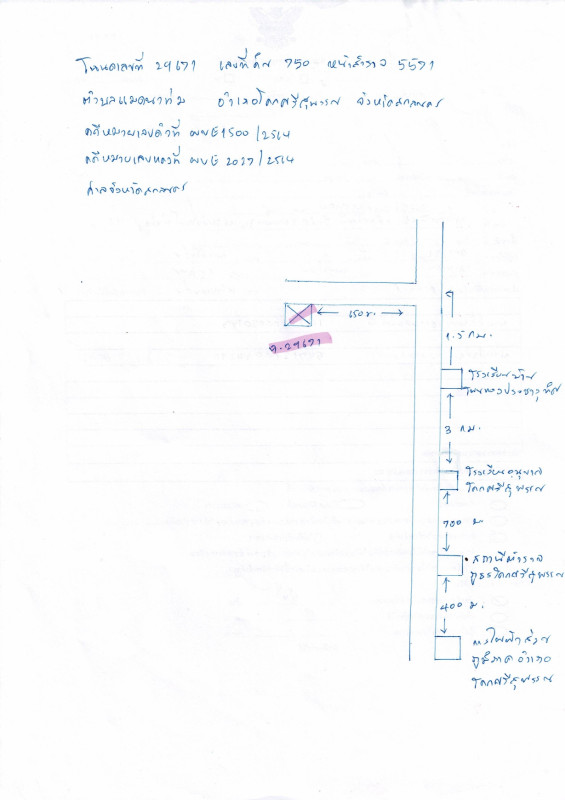 โฉนดเลขที่ 29671 เลขที่ดิน 750 หน้าสำรวจ 5571
ตำบลแมดนาท่ม อำเภอโคกศรีสุพรรณ จังหวัดสกลนคร
คดีหมายเลขดำที่ ผบE1500/2564
คดีหมายเลขแดงที่ ผบE 2027/2564
ศาลจังหวัดสกลนคร
650 ม.
ฉ.29671
1.5 กม.
โรงเรียนบ้าน
3 กม.
โรงเรียนอนุบาล
โคกศรีสุพรรณ
700 ม
สถานีตำรวจ
ภูธรโคกศรีสุพรรณ
400 ม.
การไฟฟ้าส่วน
ภูมิภาค อำเภอ
โคกศรีสุพรรณ